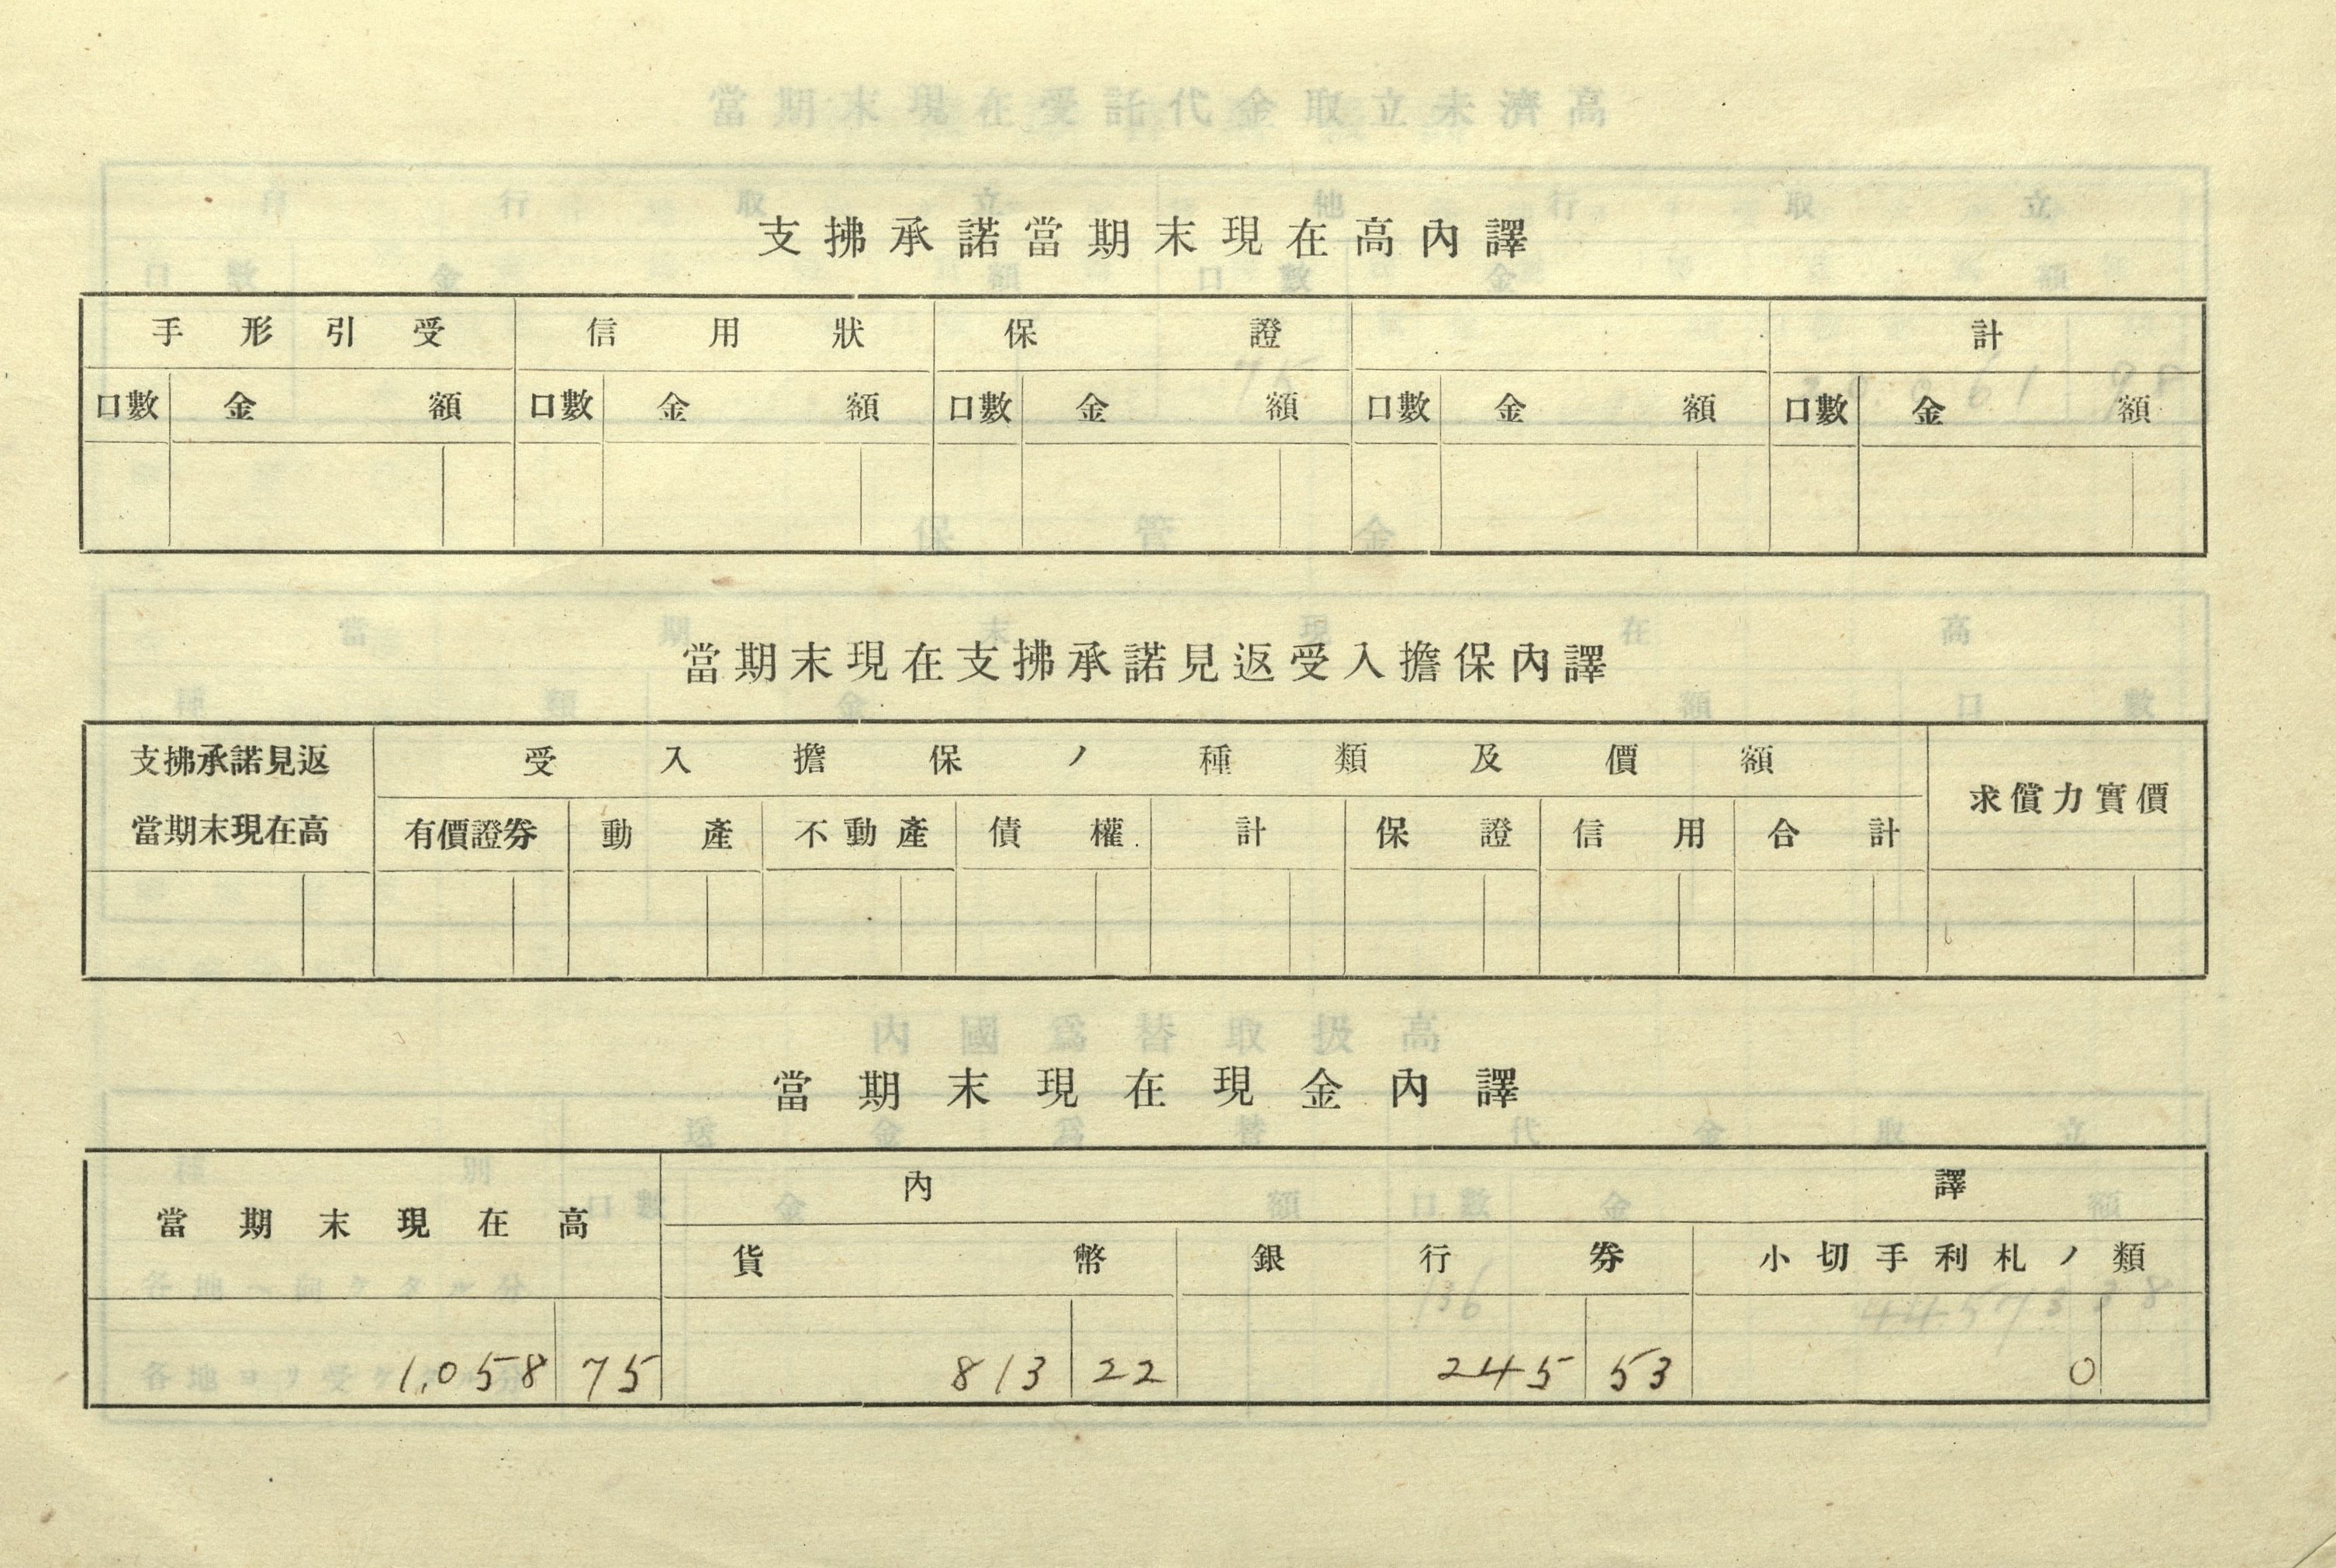 支拂承諾當期末現在高內譯
手形引受 信用狀 保證 計
口數 金額 口數 金額 口數 金額 口數 金額 口數 金額
當期末現在支拂承諾見返受入擔保內譯
支拂承諾見返 受入擔保ノ種類及價額 求償力實價
當期末現在高 有價證券 動產 不動產 債權 計 保證 信用 合計
當期末現在現金內譯
當期末現在高 內譯
貨幣 銀行券 小切手利札ノ類
1,058 75 813 22 245 53 0